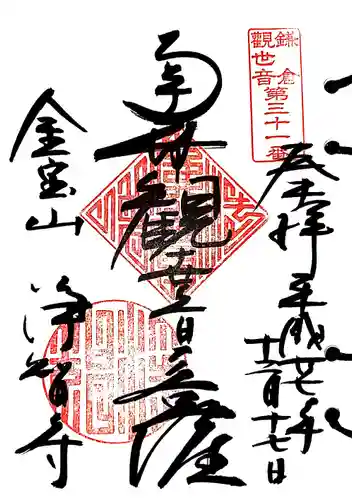 鎌倉
観世音第三十一番
奉拝 平成廿七年
十二月十七日
南無観世音菩薩
金宝山 浄智寺